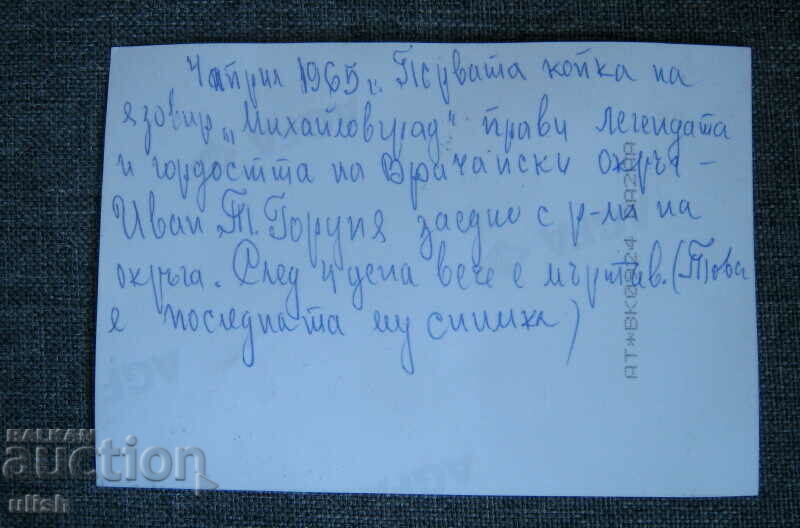 4 април 1965 г. Първата копка на
язовир „Михайловград" прави легендата
и гордостта на Врачански окръг –
Иван Т. Горуня заедно с р-ли на
окръга. След 4 дена вече е мъртъв. (Това
е последната му снимка)
BALKAN
auction
ulish